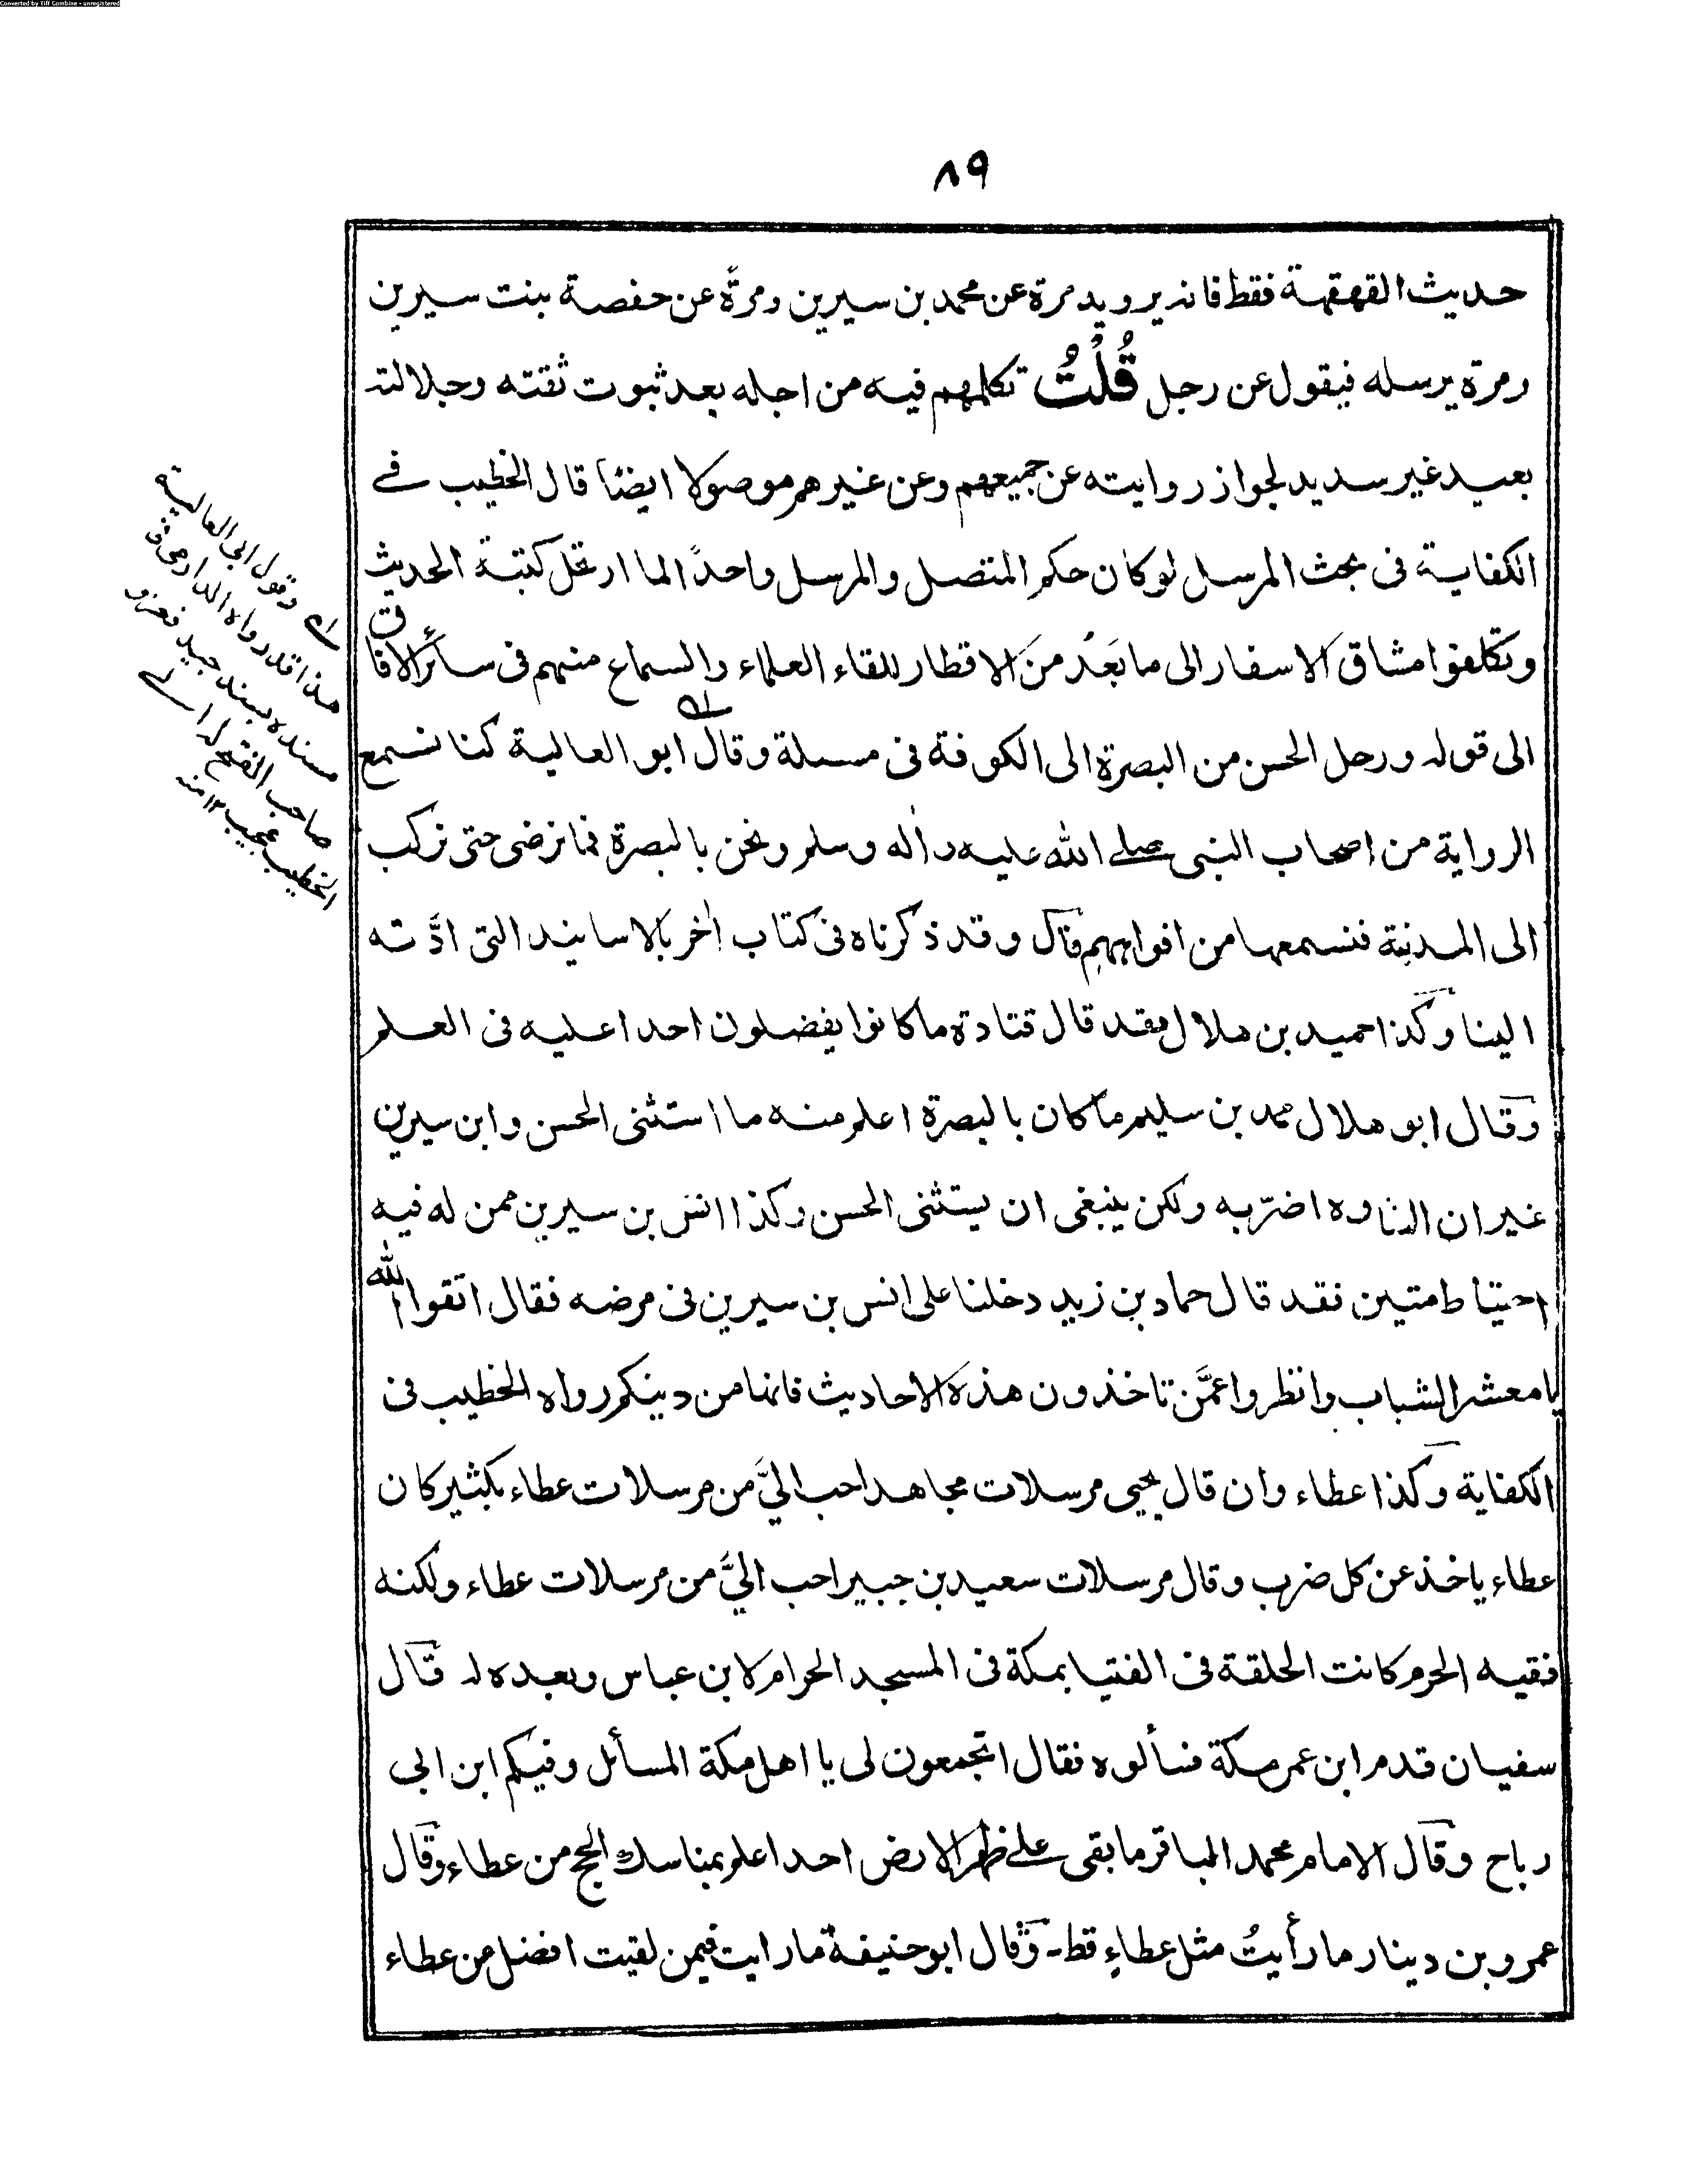 Converted by Tiff Combine - unregistered
٨٩
حديث القهقهة فقط فانه يرويه مرة عن محمد بن سيرين ومرةً عن حفصة بنت سيرين
ومرة يرسله فيقول عن رجل قُلْتُ تكلمهم فيه من اجله بعد ثبوت ثقته وجلالته
بعيد غير سديد لجواز روايته عن جميعهم وعن غيرهم موصولا ايضًا قال الخطيب في
الكفاية فى بحث المرسل لو كان حكم المتصل والمرسل واحدًا لما ارتحل كتبة الحديث
وتكلفوا مشاق الاسفار الى ما بَعُدَ من الاقطار للقاء العلماء والسماع منهم فى سائر الافاق
الى قوله ورحل الحسن من البصرة الى الكوفة فى مسئلة وقال ابو العالية كنا نسمع
الرواية من اصحاب النبى صلى الله عليه واٰله وسلم ونحن بالبصرة فما نرضى حتى نركب
الى المدينة فنسمعها من افواههم قال وقد ذكرناه فى كتاب اٰخر بالاسانيد التى ادَّته
الينا وكذا حميد بن هلال فقد قال قتادة ما كانوا يفضلون احدا عليه فى العلم
وقال ابو هلال محمد بن سليم ما كان بالبصرة اعلم منه ما استثنى الحسن وابن سيرين
غير ان التناوه اضرّ به ولكن ينبغى ان يستثنى الحسن وكذا انس بن سيرين ممن له فيه
احتياط متين فقد قال حماد بن زيد دخلنا على انس بن سيرين فى مرضه فقال اتقوا الله
يا معشر الشباب وانظروا عمَّن تاخذون هذه الاحاديث فانها من دينكم رواه الخطيب فى
الكفاية وكذا عطاء وان قال يحيى مرسلات مجاهد احب اليَّ من مرسلات عطاء بكثير كان
عطاء ياخذ عن كل ضرب وقال مرسلات سعيد بن جبير احب اليَّ من مرسلات عطاء ولكنه
فقيه الحرم كانت الحلقة فى الفتيا بمكة فى المسجد الحرام لابن عباس وبعده له قال
سفيان قدم ابن عمر مكة فسألوه فقال اتجمعون لى يا اهل مكة المسائل وفيكم ابن ابى
رباح وقال الامام محمد الباقر ما بقى على ظهر الارض احد اعلم بمناسك الحج من عطاء وقال
عمرو بن دينار ما رأيتُ مثل عطاءٍ قط - وقال ابو حنيفة ما رايت فيمن لقيت افضل من عطاء
له وقول ابى العالية
هذا قد رواه الدارمى فى
مسنده بسند جيد فعزو
صاحب الفتح له الى
الخطيب عجيب ١٢ منه